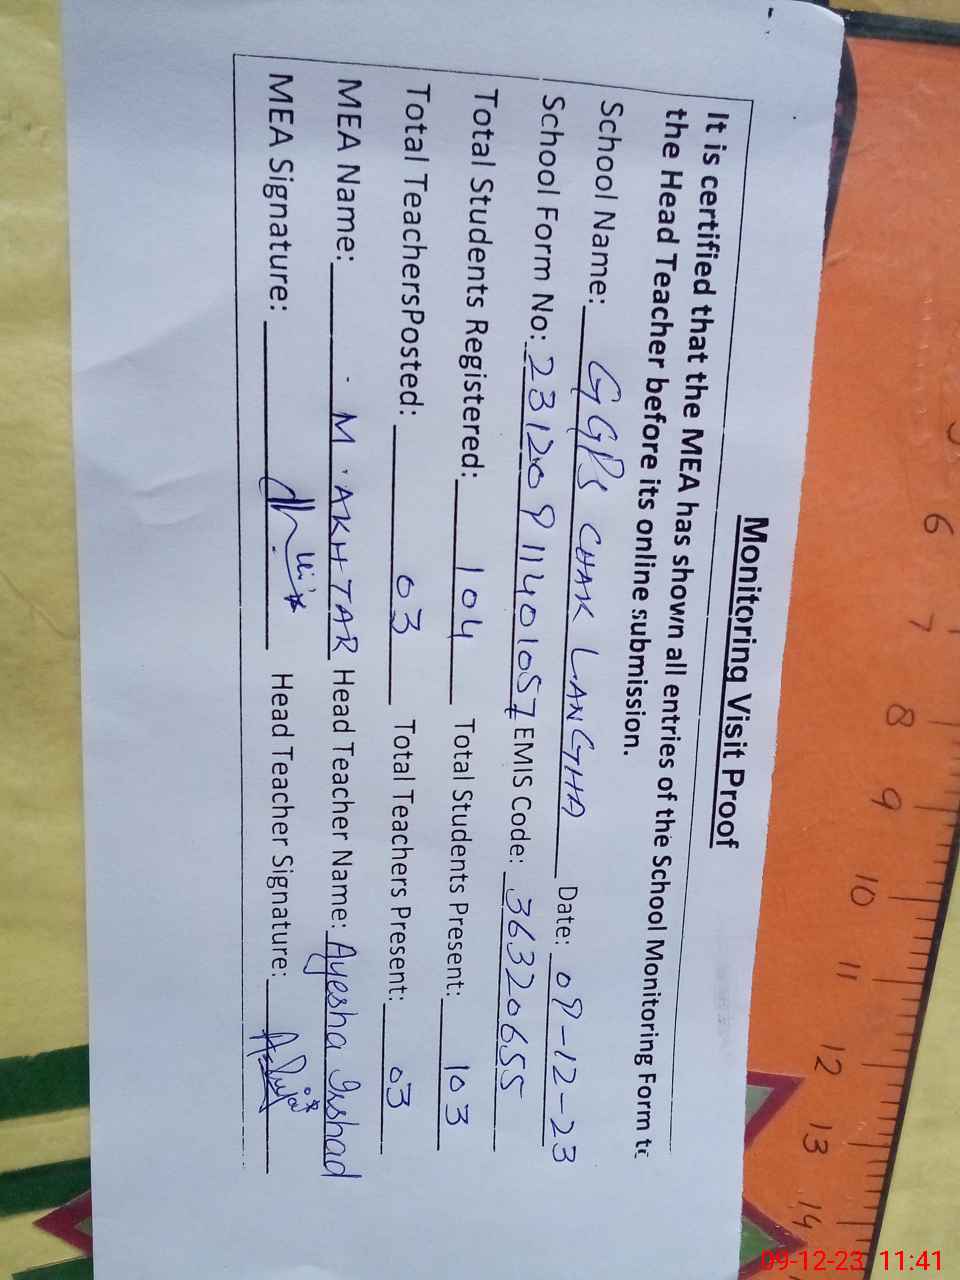 Monitoring Visit Proof
It is certified that the MEA has shown all entries of the School Monitoring Form to
the Head Teacher before its online submission.
School Name: GGPS CHAK LANGHA Date: 09-12-23
School Form No: 23120911401057 EMIS Code: 36320655
Total Students Registered: 104 Total Students Present: 103
Total TeachersPosted: 03 Total Teachers Present: 03
MEA Name: M. AKHTAR Head Teacher Name: Ayesha Irshad
MEA Signature: Head Teacher Signature:
6 7 8 9 10 11 12 13 14
09-12-23 11:41